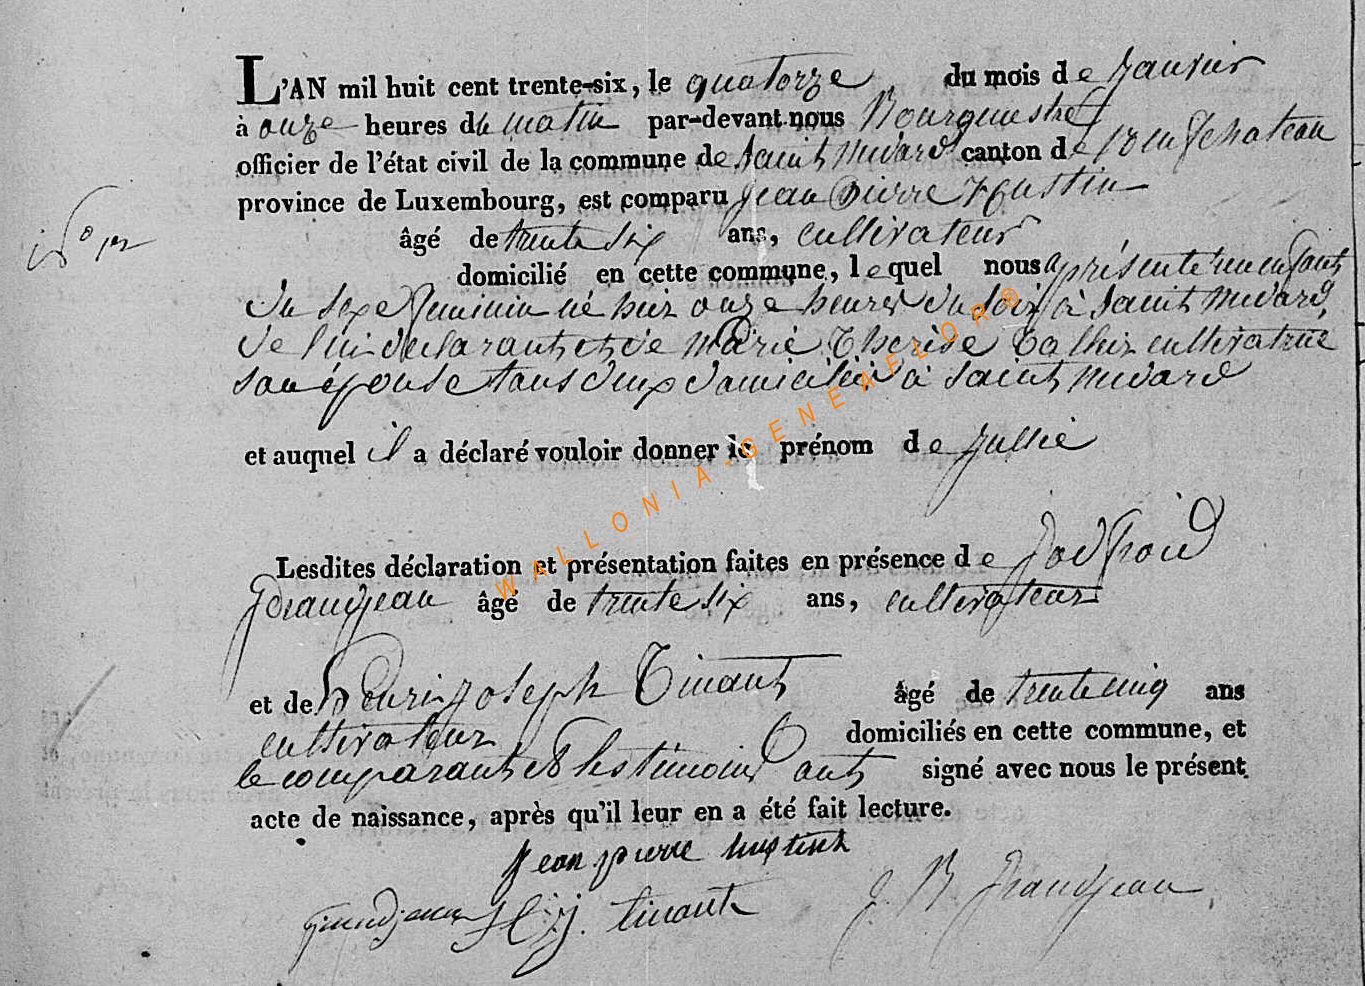 L'AN mil huit cent trente-six, le quatorze du mois de Janvier
à onze heures du matin par-devant nous Bourgmestre
officier de l'état civil de la commune de Saint Médard canton de Neufchateau
province de Luxembourg, est comparu Jean Pierre Hustin
âgé de trente six ans, cultivateur
domicilié en cette commune, lequel nous a présenté un enfant
du sexe feminin né hier onze heures du soir à Saint Médard,
de lui déclarant et de Marie Thérèse cultivatrice
son épouse tous deux domiciliés à Saint Médard
et auquel il a déclaré vouloir donner le prénom de Jullie
Lesdites déclaration et présentation faites en présence de Godfroid
Grandjean âgé de trente six ans, cultivateur
et de Henri Joseph Tinant âgé de trente cinq ans
cultivateur domiciliés en cette commune, et
le comparant et les témoins ont signé avec nous le présent
acte de naissance, après qu'il leur en a été fait lecture.
jean pierre hustin
Grandjean H. j. tinant J. B. Grandjean
WALLONIA-GENEAELOR®